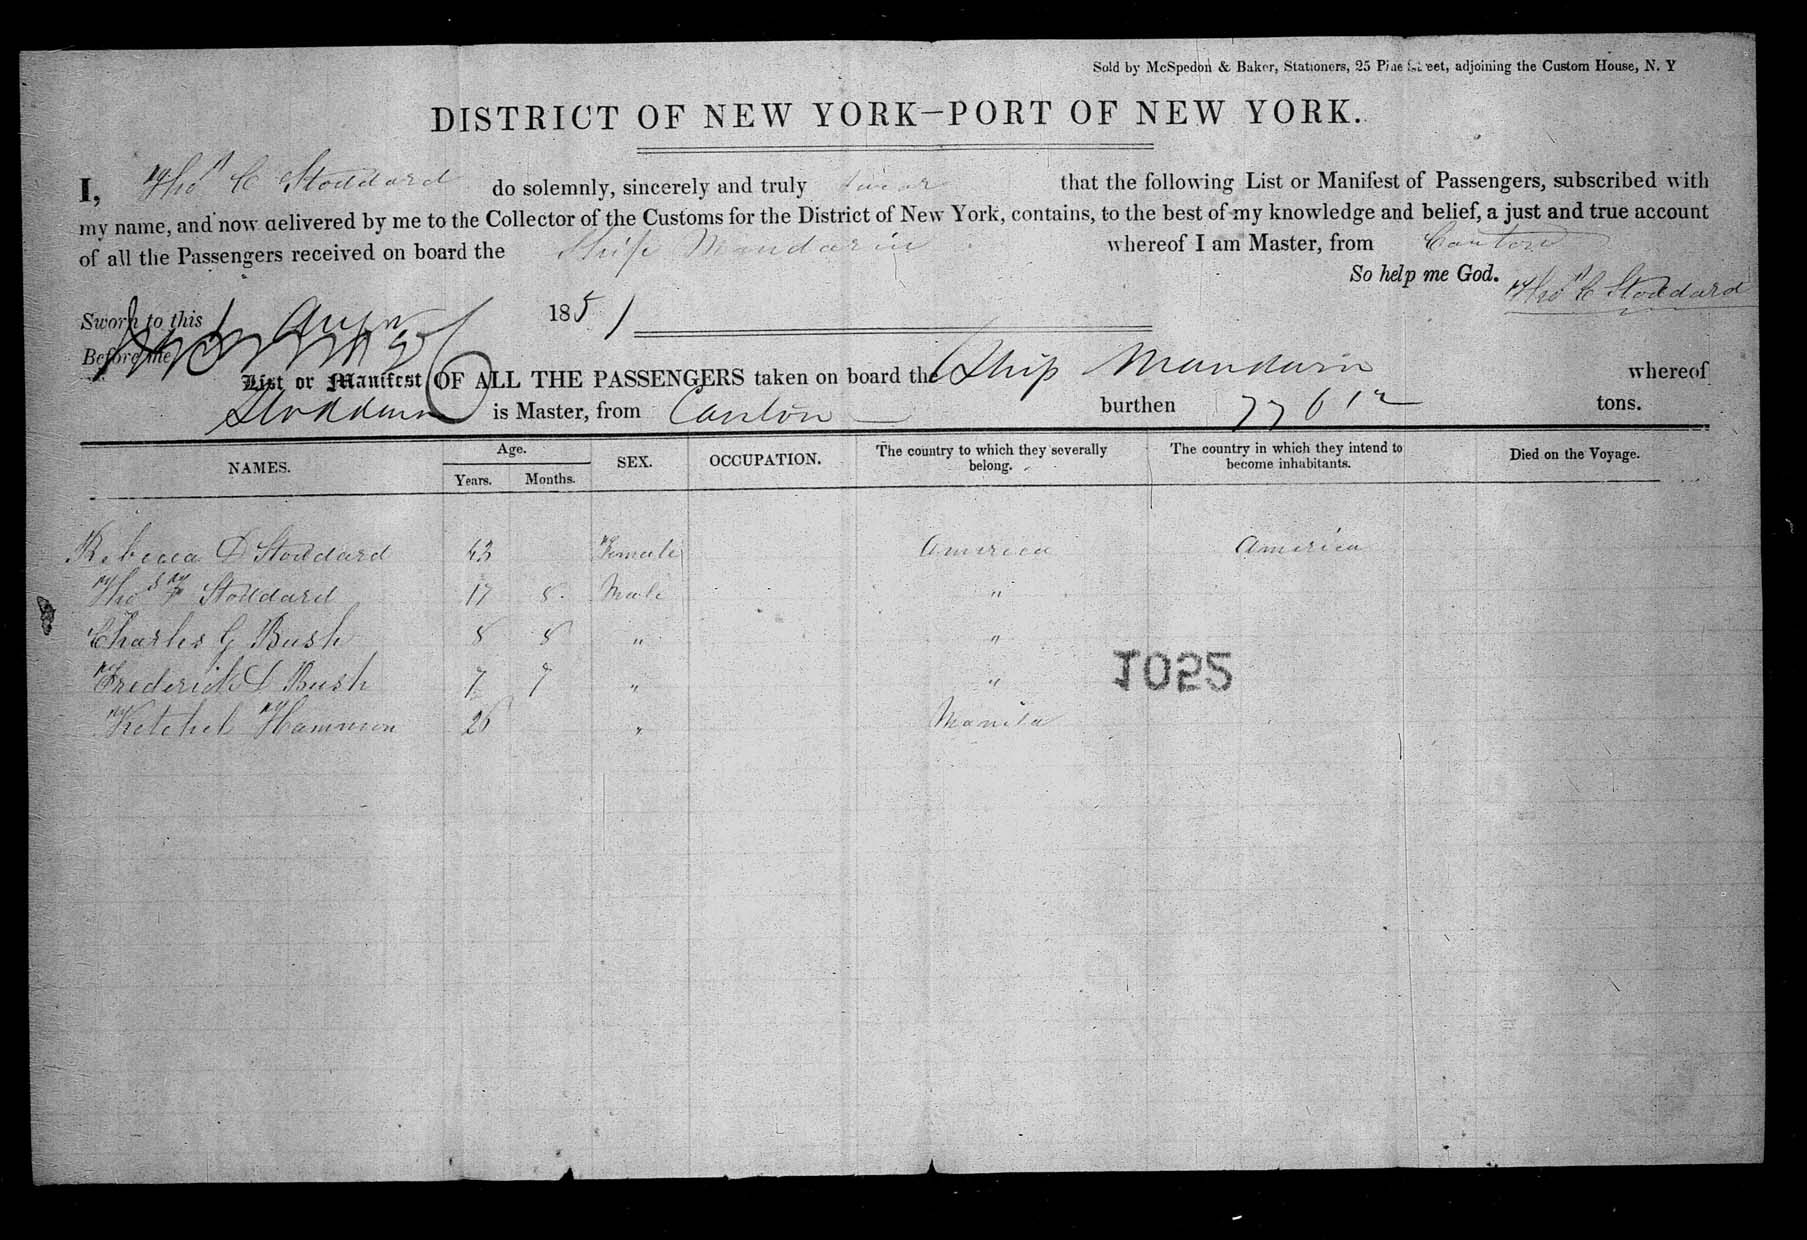 Sold by McSpedon & Baker, Stationers, 25 Pine Street, adjoining the Custom House, N. Y
DISTRICT OF NEW YORK—PORT OF NEW YORK.
I, Thos C Stoddard do solemnly, sincerely and truly swear that the following List or Manifest of Passengers, subscribed with
my name, and now delivered by me to the Collector of the Customs for the District of New York, contains, to the best of my knowledge and belief, a just and true account
of all the Passengers received on board the Ship Mandarin whereof I am Master, from Canton
So help me God. Thos C Stoddard
Sworn to this 1851
Before me
List or Manifest OF ALL THE PASSENGERS taken on board the Ship Mandarin whereof
Stoddard is Master, from Canton burthen 776 12 tons.
NAMES. Age. Years. Months. SEX. OCCUPATION. The country to which they severally belong. The country in which they intend to become inhabitants. Died on the Voyage.
Rebecca D Stoddard 43 Female America America
Thos F Stoddard 17 8 Male "
Charles G Bush 8 8 " "
Frederick D Bush 7 7 " "
1025
Ketchel Hammon 26 " Manila